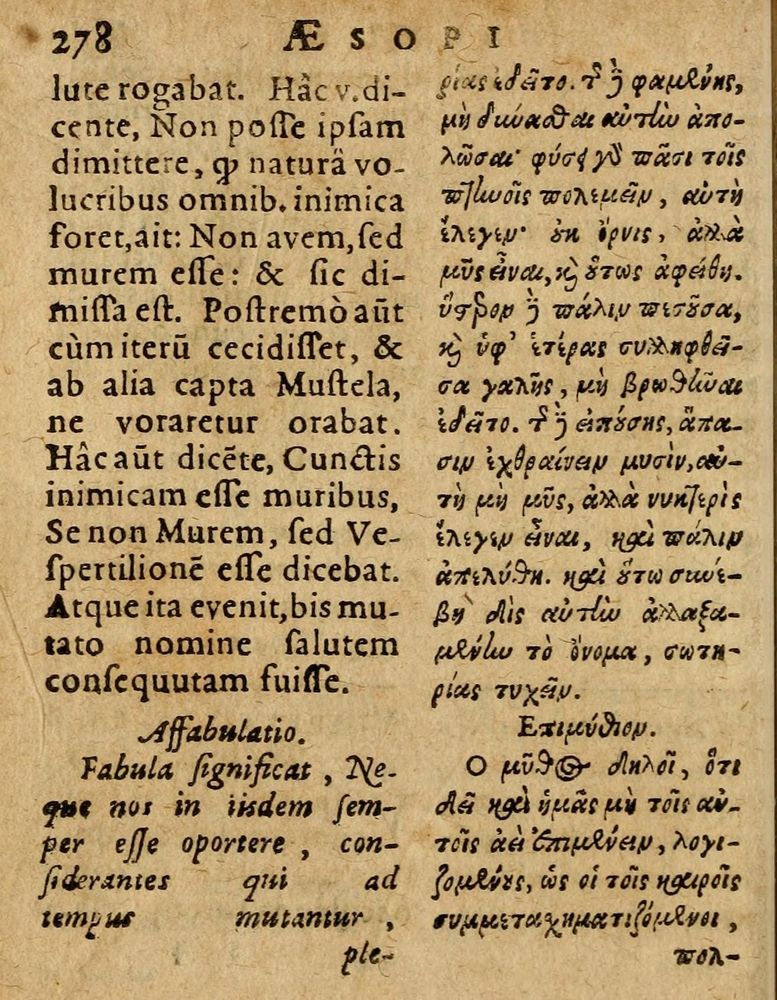 278 ÆSOPI
lute rogabat. Hâc v. di-
cente, Non poſſe ipſam
dimittere, ꝙ naturâ vo-
lucribus omnib. inimica
foret, ait: Non avem, ſed
murem eſſe: & ſic di-
miſſa eſt. Poſtremò aūt
cùm iterū cecidiſſet, &
ab alia capta Muſtela,
ne voraretur orabat.
Hâc aūt dicēte, Cunctis
inimicam eſſe muribus,
Se non Murem, ſed Ve-
ſpertilionē eſſe dicebat.
Atque ita evenit, bis mu-
tato nomine ſalutem
conſequutam fuiſſe.
Affabulatio.
Fabula ſignificat, Ne-
que nos in iisdem ſem-
per eſſe oportere, con-
ſiderantes qui ad
tempus mutantur,
ple-
ρίας ἐδεῖτο. τῆς δὲ φαμένης,
μὴ δύνασθαι αὐτὴν ἀπο-
λῦσαι· φύσει γὸ πᾶσι τοῖς
πτηνοῖς πολεμεῖν, αὐτὴ
ἔλεγεν· ȣ̓κ ὄρνις, ἀλλὰ
μῦς εἶναι, ϗ ȣ̔́τως ἀφείθη.
ὕστερον δὲ πάλιν πεσȣ͂σα,
ϗ ὑφ' ἑτέρας συλληφθεῖ-
σα γαλῆς, μὴ βρωθῆναι
ἐδεῖτο. τῆς δὲ εἰπȣ́σης, ἅπα-
σιν ἐχθραίνειν μυσὶν, αὐ-
τὴ μὴ μῦς, ἀλλὰ νυκτερὶς
ἔλεγεν εἶναι, καὶ πάλιν
ἀπελύθη. καὶ ȣ̔́τω συνέ-
βη δὶς αὐτὴν ἀλλαξα-
μένην τὸ ὄνομα, σωτη-
ρίας τυχεῖν.
Επιμύθιον.
Ο μῦθος δηλοῖ, ὅτι
δεῖ καὶ ἡμᾶς μὴ τοῖς αὐ-
τοῖς ἀεὶ ἐπιμένειν, λογι-
ζομένȣς, ὡς οἱ τοῖς καιροῖς
συμμεταχηματιζόμενοι,
πολ-